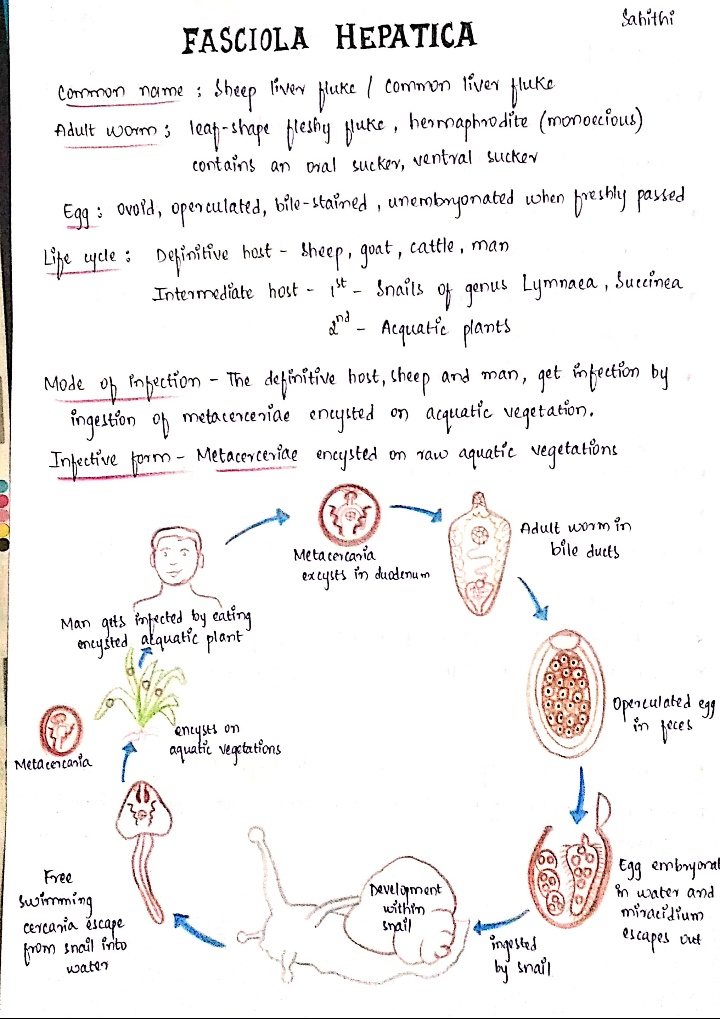 Sahithi
FASCIOLA HEPATICA
Common name : Sheep liver fluke / Common liver fluke
Adult worm ; leaf-shape fleshy fluke, hermaphrodite (monoecious)
contains an oral sucker, ventral sucker
Egg : ovoid, operculated, bile-stained, unembryonated when freshly passed
Life cycle : Definitive host - Sheep, goat, cattle, man
Intermediate host - 1st - Snails of genus Lymnaea, Succinea
2nd - Acquatic plants
Mode of infection - The definitive host, sheep and man, get infection by
ingestion of metacerceriae encysted on acquatic vegetation.
Infective form - Metacerceriae encysted on raw aquatic vegetations
Metacercaria
excysts in duodenum
Adult worm in
bile ducts
Man gets infected by eating
encysted acquatic plant
Operculated egg
in feces
encysts on
aquatic vegetations
Metacercaria
Egg embryonat
in water and
miracidium
escapes out
Development
within
snail
ingested
by snail
Free
swimming
cercaria escape
from snail into
water